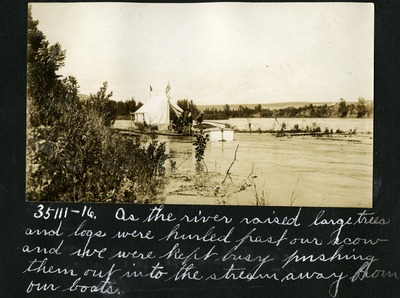 35111-16. As the river raised large trees
and logs were hurled past our scow
and we were kept busy pushing
them out into the stream away from
our boats.